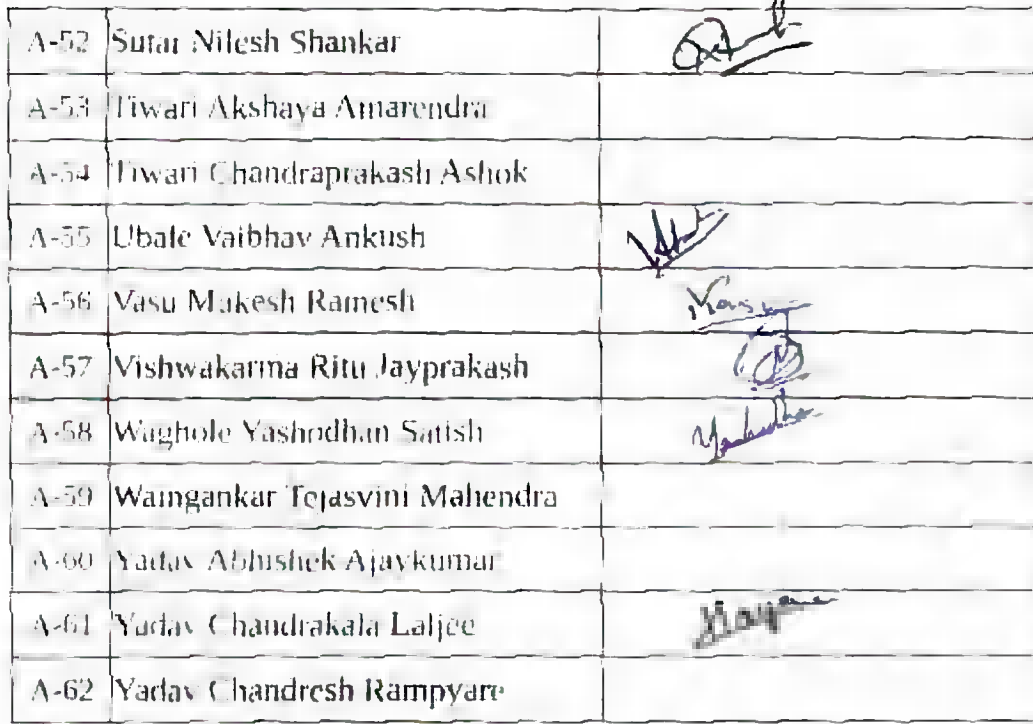 A-52 Sutar Nilesh Shankar
A-53 Tiwari Akshaya Amarendra
A-54 Tiwari Chandraprakash Ashok
A-55 Ubale Vaibhav Ankush
A-56 Vasu Mukesh Ramesh
A-57 Vishwakarma Ritu Jayprakash
A-58 Waghole Yashodhan Satish
A-59 Waingankar Tejasvini Mahendra
A-60 Yadav Abhishek Ajaykumar
A-61 Yadav Chandrakala Laljee
A-62 Yadav Chandresh Rampyare